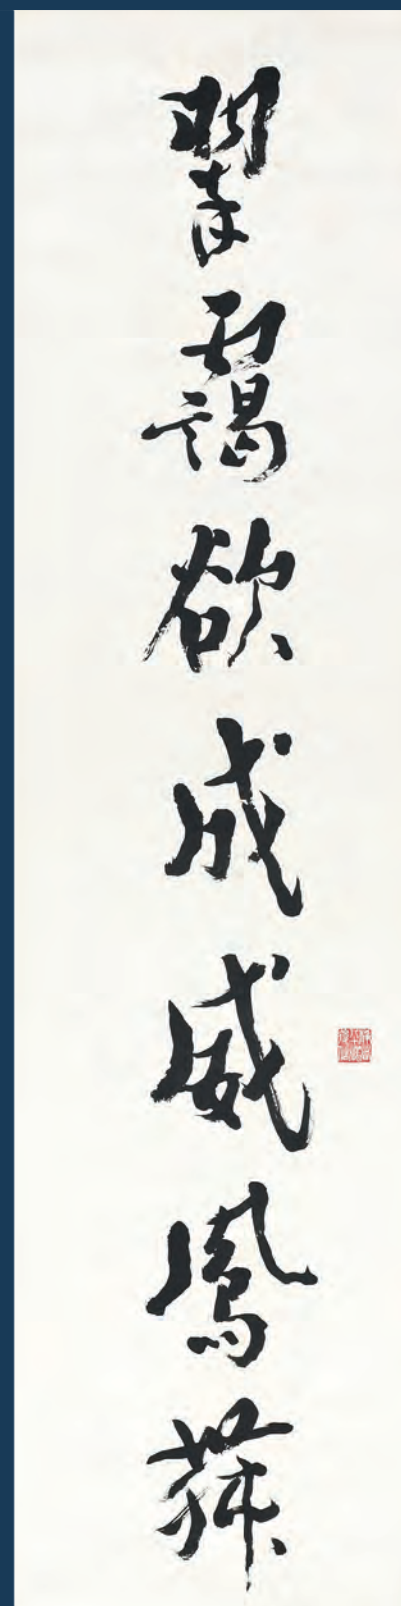 翠靄欲成威鳳舞